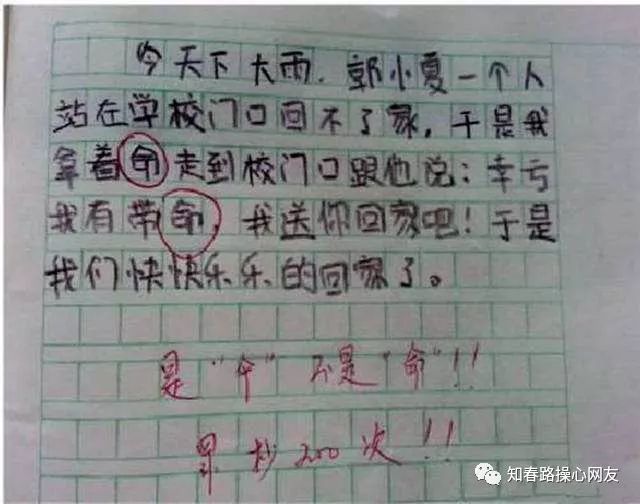 今天下大雨.郭小夏一个人
站在学校门口回不了家,于是我
拿着命走到校门口跟他说:幸亏
我有带命,我送你回家吧!于是
我们快快乐乐的回家了。
是"伞"不是"命"!!
罚抄200次!!
知春路操心网友